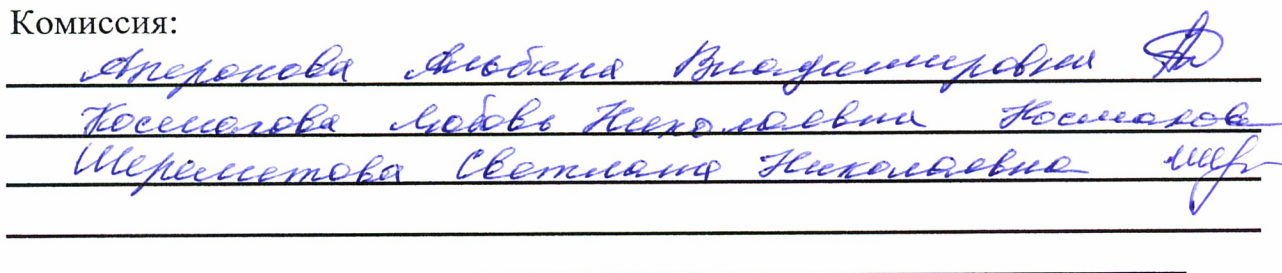 Комиссия:
Апронова Альбина Владимировна
Космакова Любовь Николаевна Космакова
Шереметова Светлана Николаевна